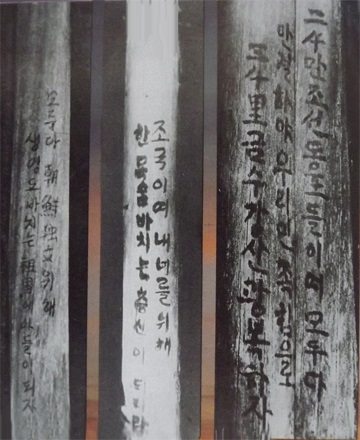 二千만 조선동포들이여 모두다
단결하야 우리민족힘으로
三千里금수강산광복하자
조국이여 내 너를 위해
한 목숨 바치는 충신이 되리라
모두다 朝鮮独立 위해
생명도 바치는 祖国에 아들이 되자